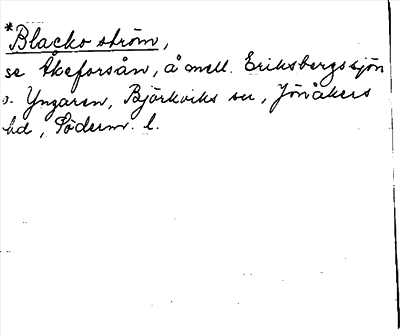 *Blacko ström,
se Åkeforsån, å mell. Eriksbergssjön
o. Yngaren, Björkviks sn, Jönåkers
hd, Söderm. l.